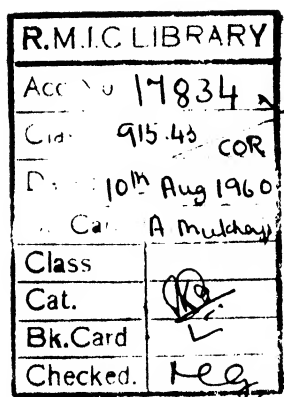 R.M.I.C LIBRARY
Acc 17834
915.43 COR
10th Aug 1960
Ca A Mukhay
Class
Cat.
Bk.Card
Checked.